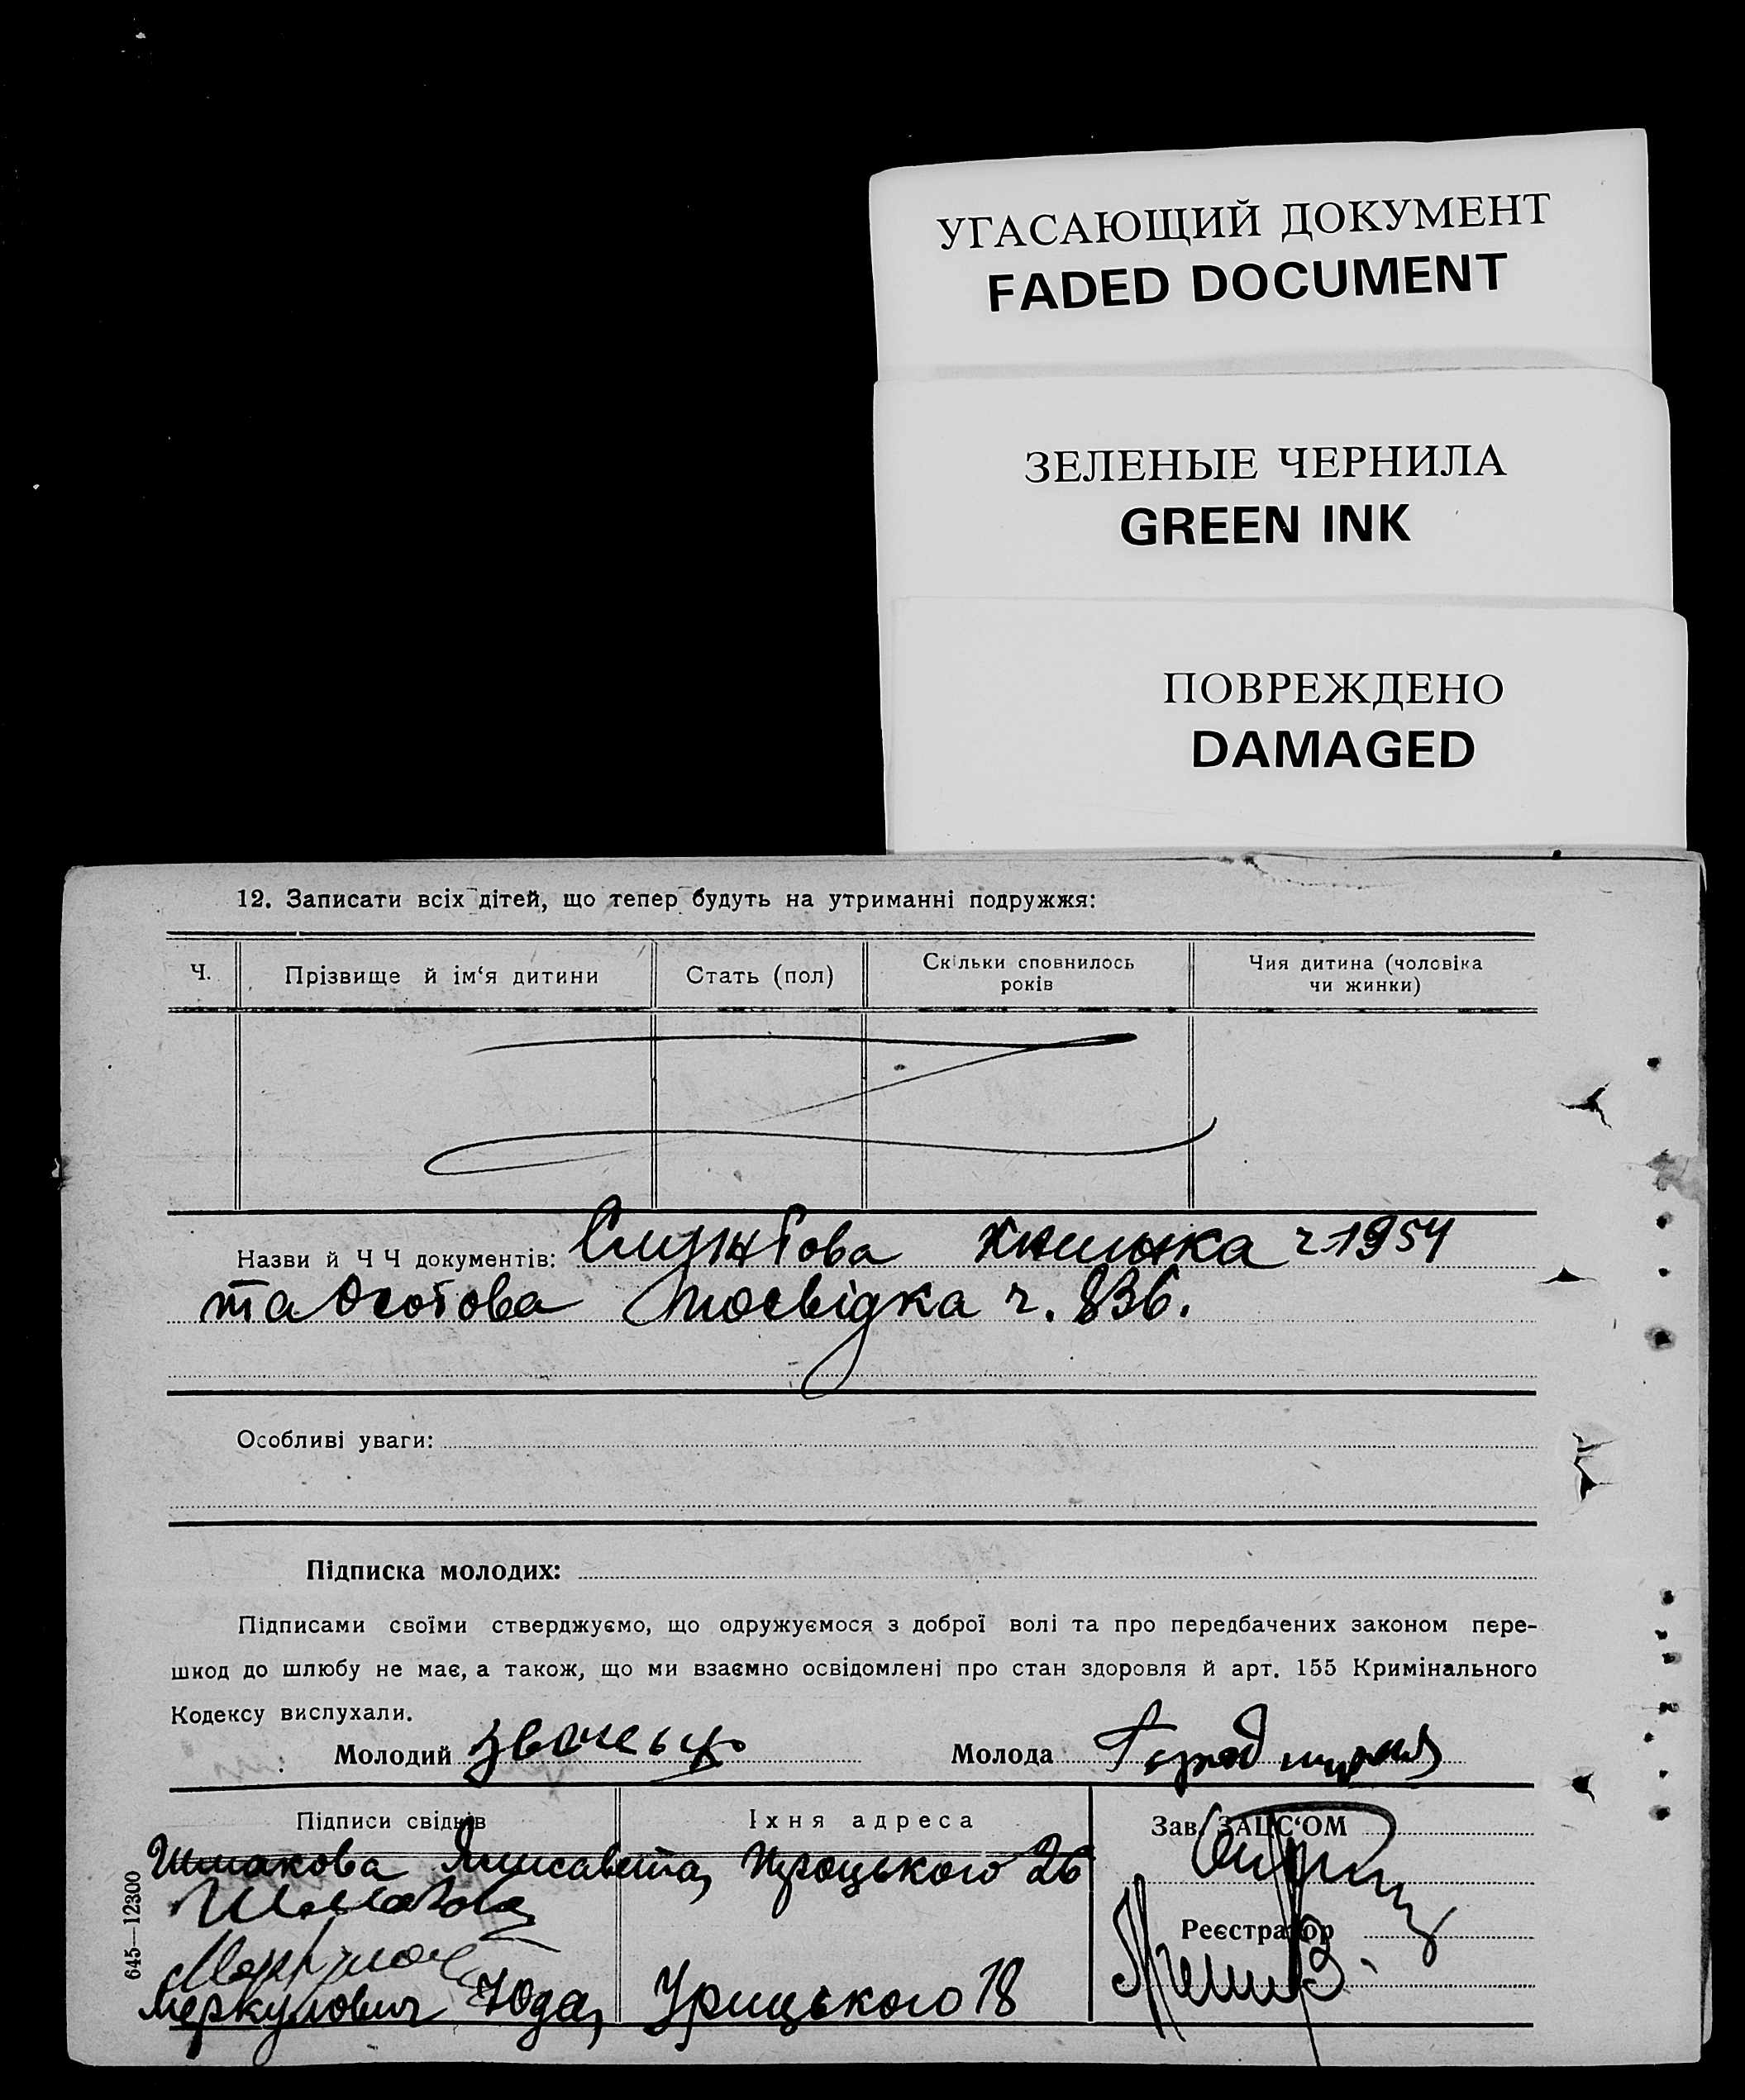 УГАСАЮЩИЙ ДОКУМЕНТ
FADED DOCUMENT
ЗЕЛЕНЫЕ ЧЕРНИЛА
GREEN INK
ПОВРЕЖДЕНО
DAMAGED
12. Записати всіх дітей, що тепер будуть на утриманні подружжя:
Ч. Прізвище й ім‘я дитини Стать (пол) Скільки сповнилось років Чия дитина (чоловіка чи жинки)
Назви й Ч Ч документів: Службова книжка ч. 1954
та особова посвідка ч. 836.
Особливі уваги:
Підписка молодих:
Підписами своїми стверджуємо, що одружуємося з доброї волі та про передбачених законом пере-
шкод до шлюбу не має, а також, що ми взаємно освідомлені про стан здоровля й арт. 155 Кримінального
Кодексу вислухали.
Молодий Молода
Підписи свідків Їхня адреса Зав. ЗАЦС‘ОМ
Шмакова Троцького 26
Шмакова
Реєстратор
Меркулович Юда, Урицького 18
645—12300